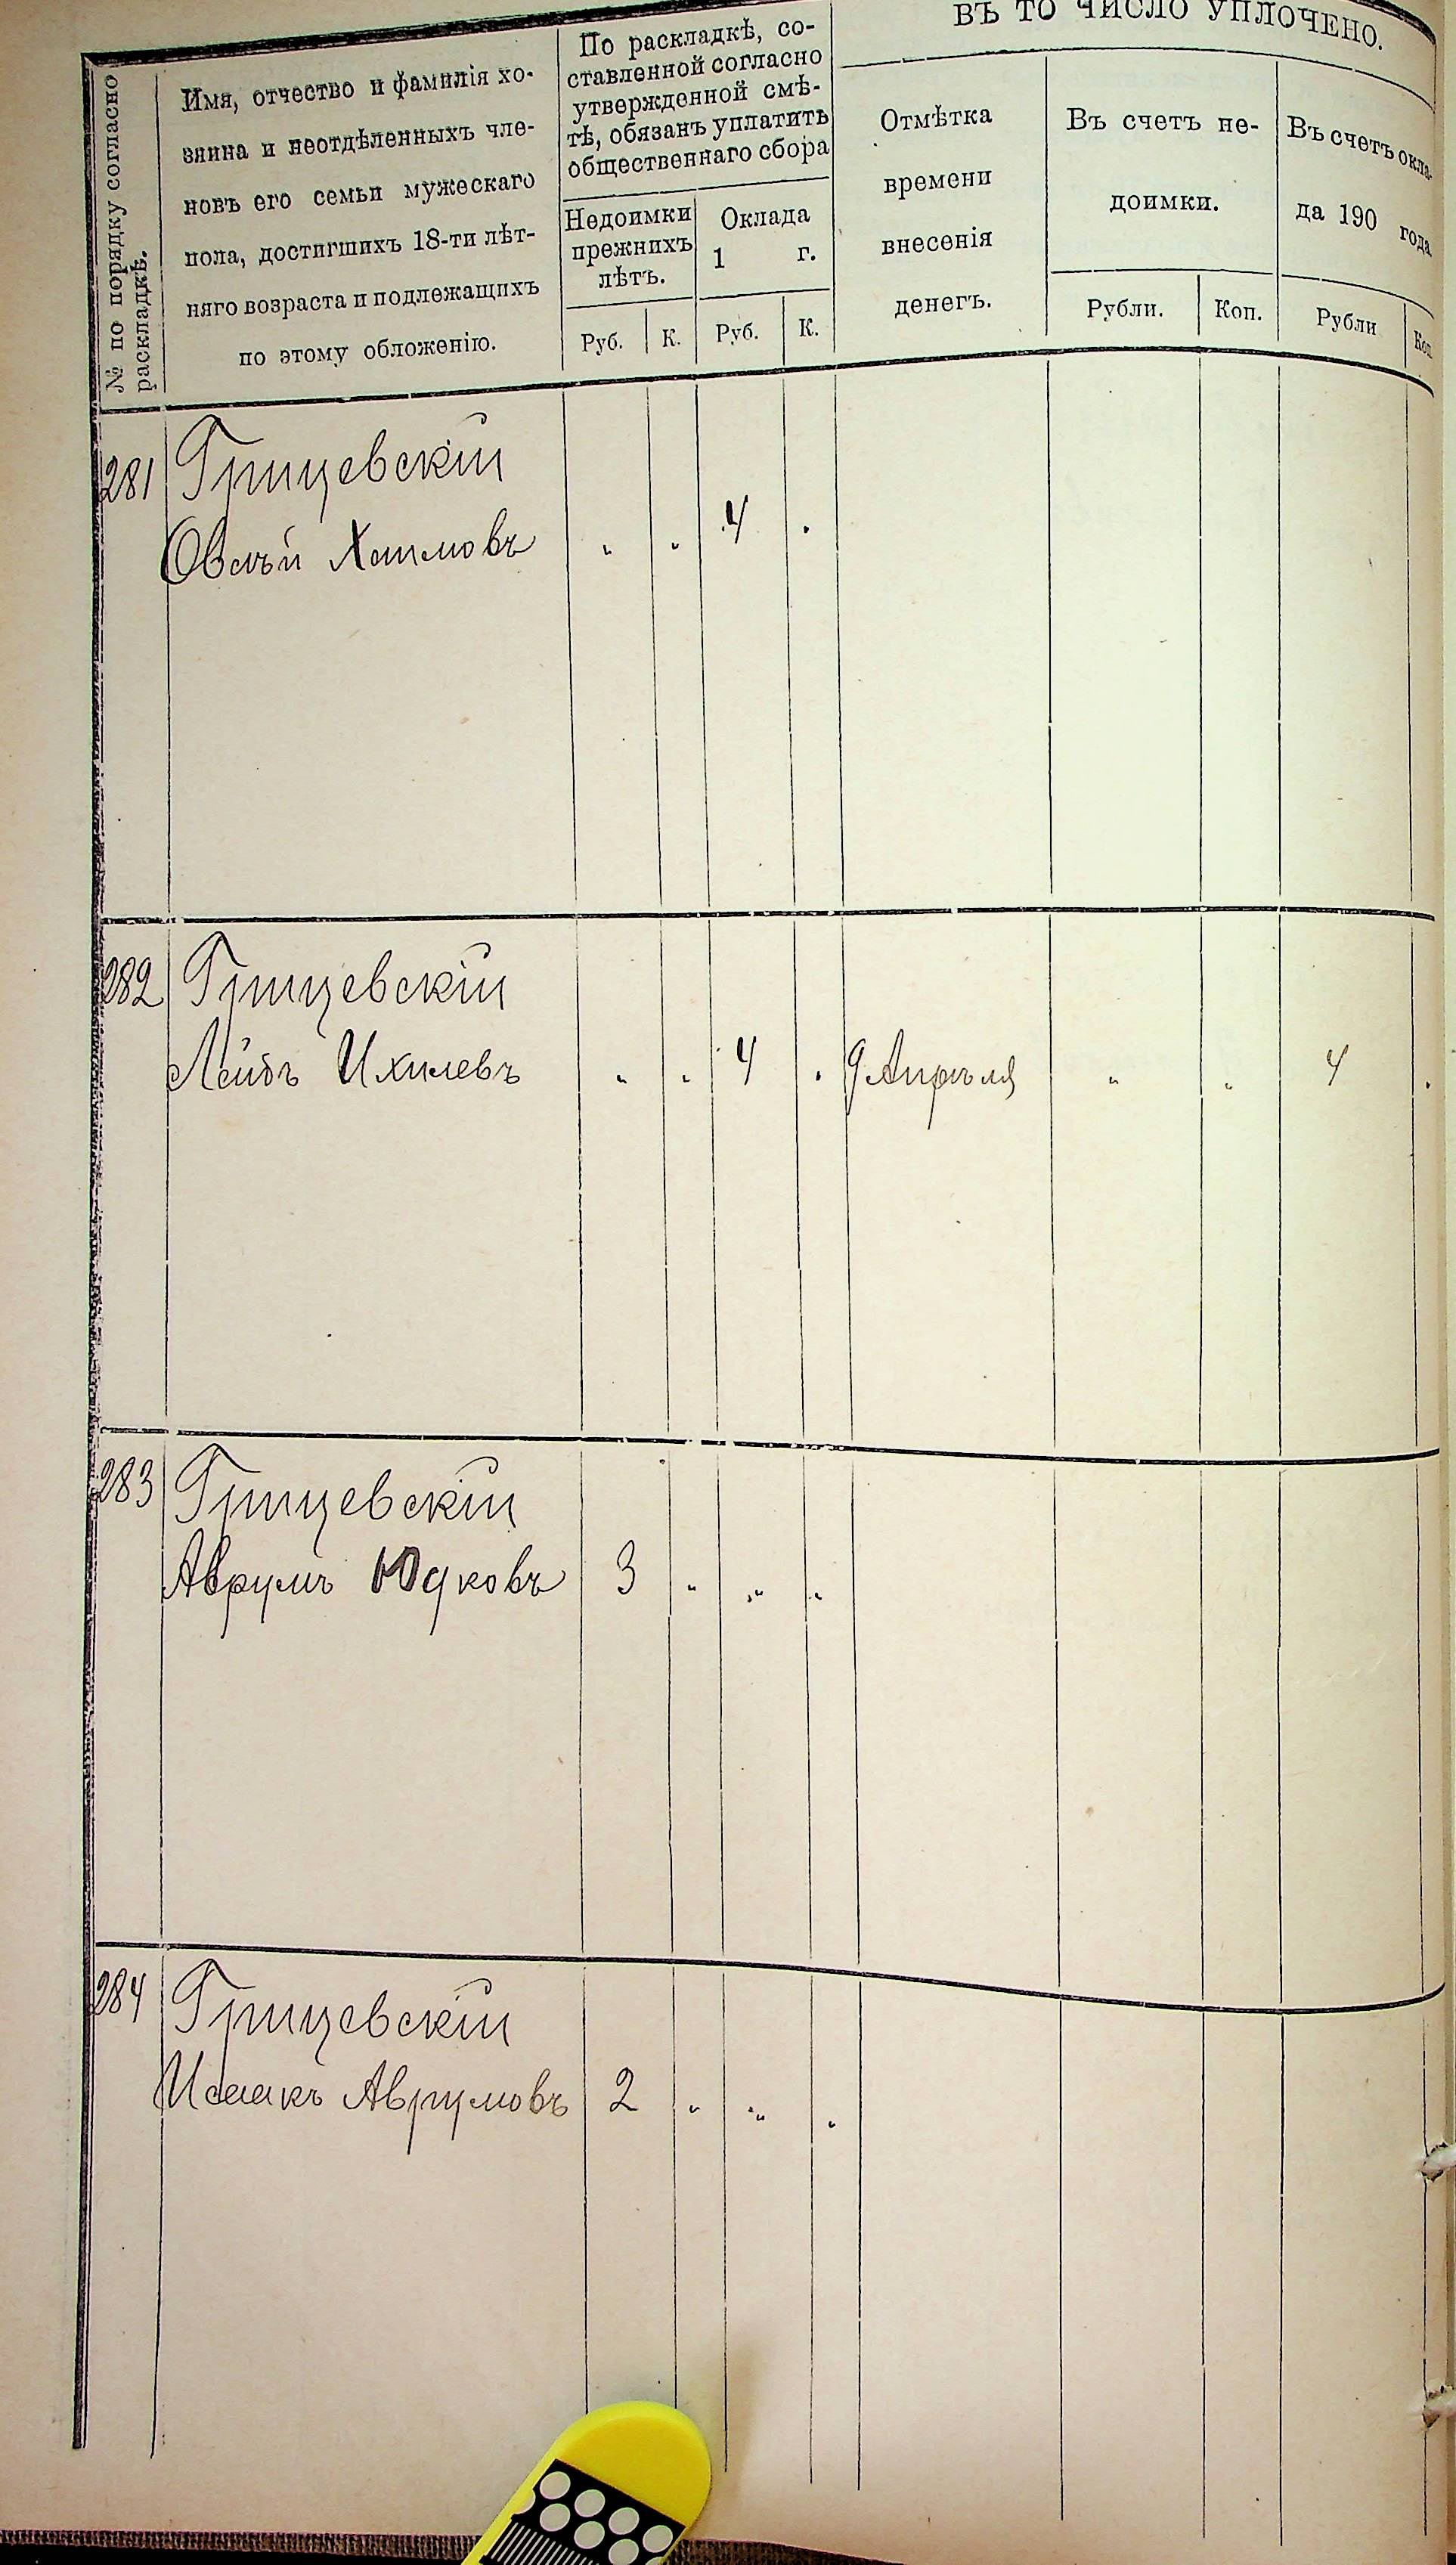 № по порядку согласно
раскладкѣ.
Имя, отчество и фамилія хо-
зяина и неотдѣленныхъ чле-
новъ его семьи мужескаго
пола, достигшихъ 18-ти лѣт-
няго возраста и подлежащихъ
по этому обложенію.
По раскладкѣ, со-
ставленной согласно
утвержденной смѣ-
тѣ, обязанъ уплатить
общественнаго сбора
Недоимки
прежнихъ
лѣтъ.
Руб. К.
Оклада
1 г.
Руб. К.
ВЪ ТО ЧИСЛО УПЛОЧЕНО.
Отмѣтка
времени
внесенія
денегъ.
Въ счетъ не-
доимки.
Рубли. Коп.
Въ счетъ окла-
да 190 года
Рубли Коп.
281 Грицевскій
Овсѣй Хаимовъ „ „ 4 „
282 Грицевскій
Лейбъ Ихилевъ „ „ 4 „ 9 Апрѣля „ „ 4 „
283 Грицевскій
Аврумъ Юдковъ 3 „ „ „
284 Грицевскій
Исаакъ Аврумовъ 2 „ „ „